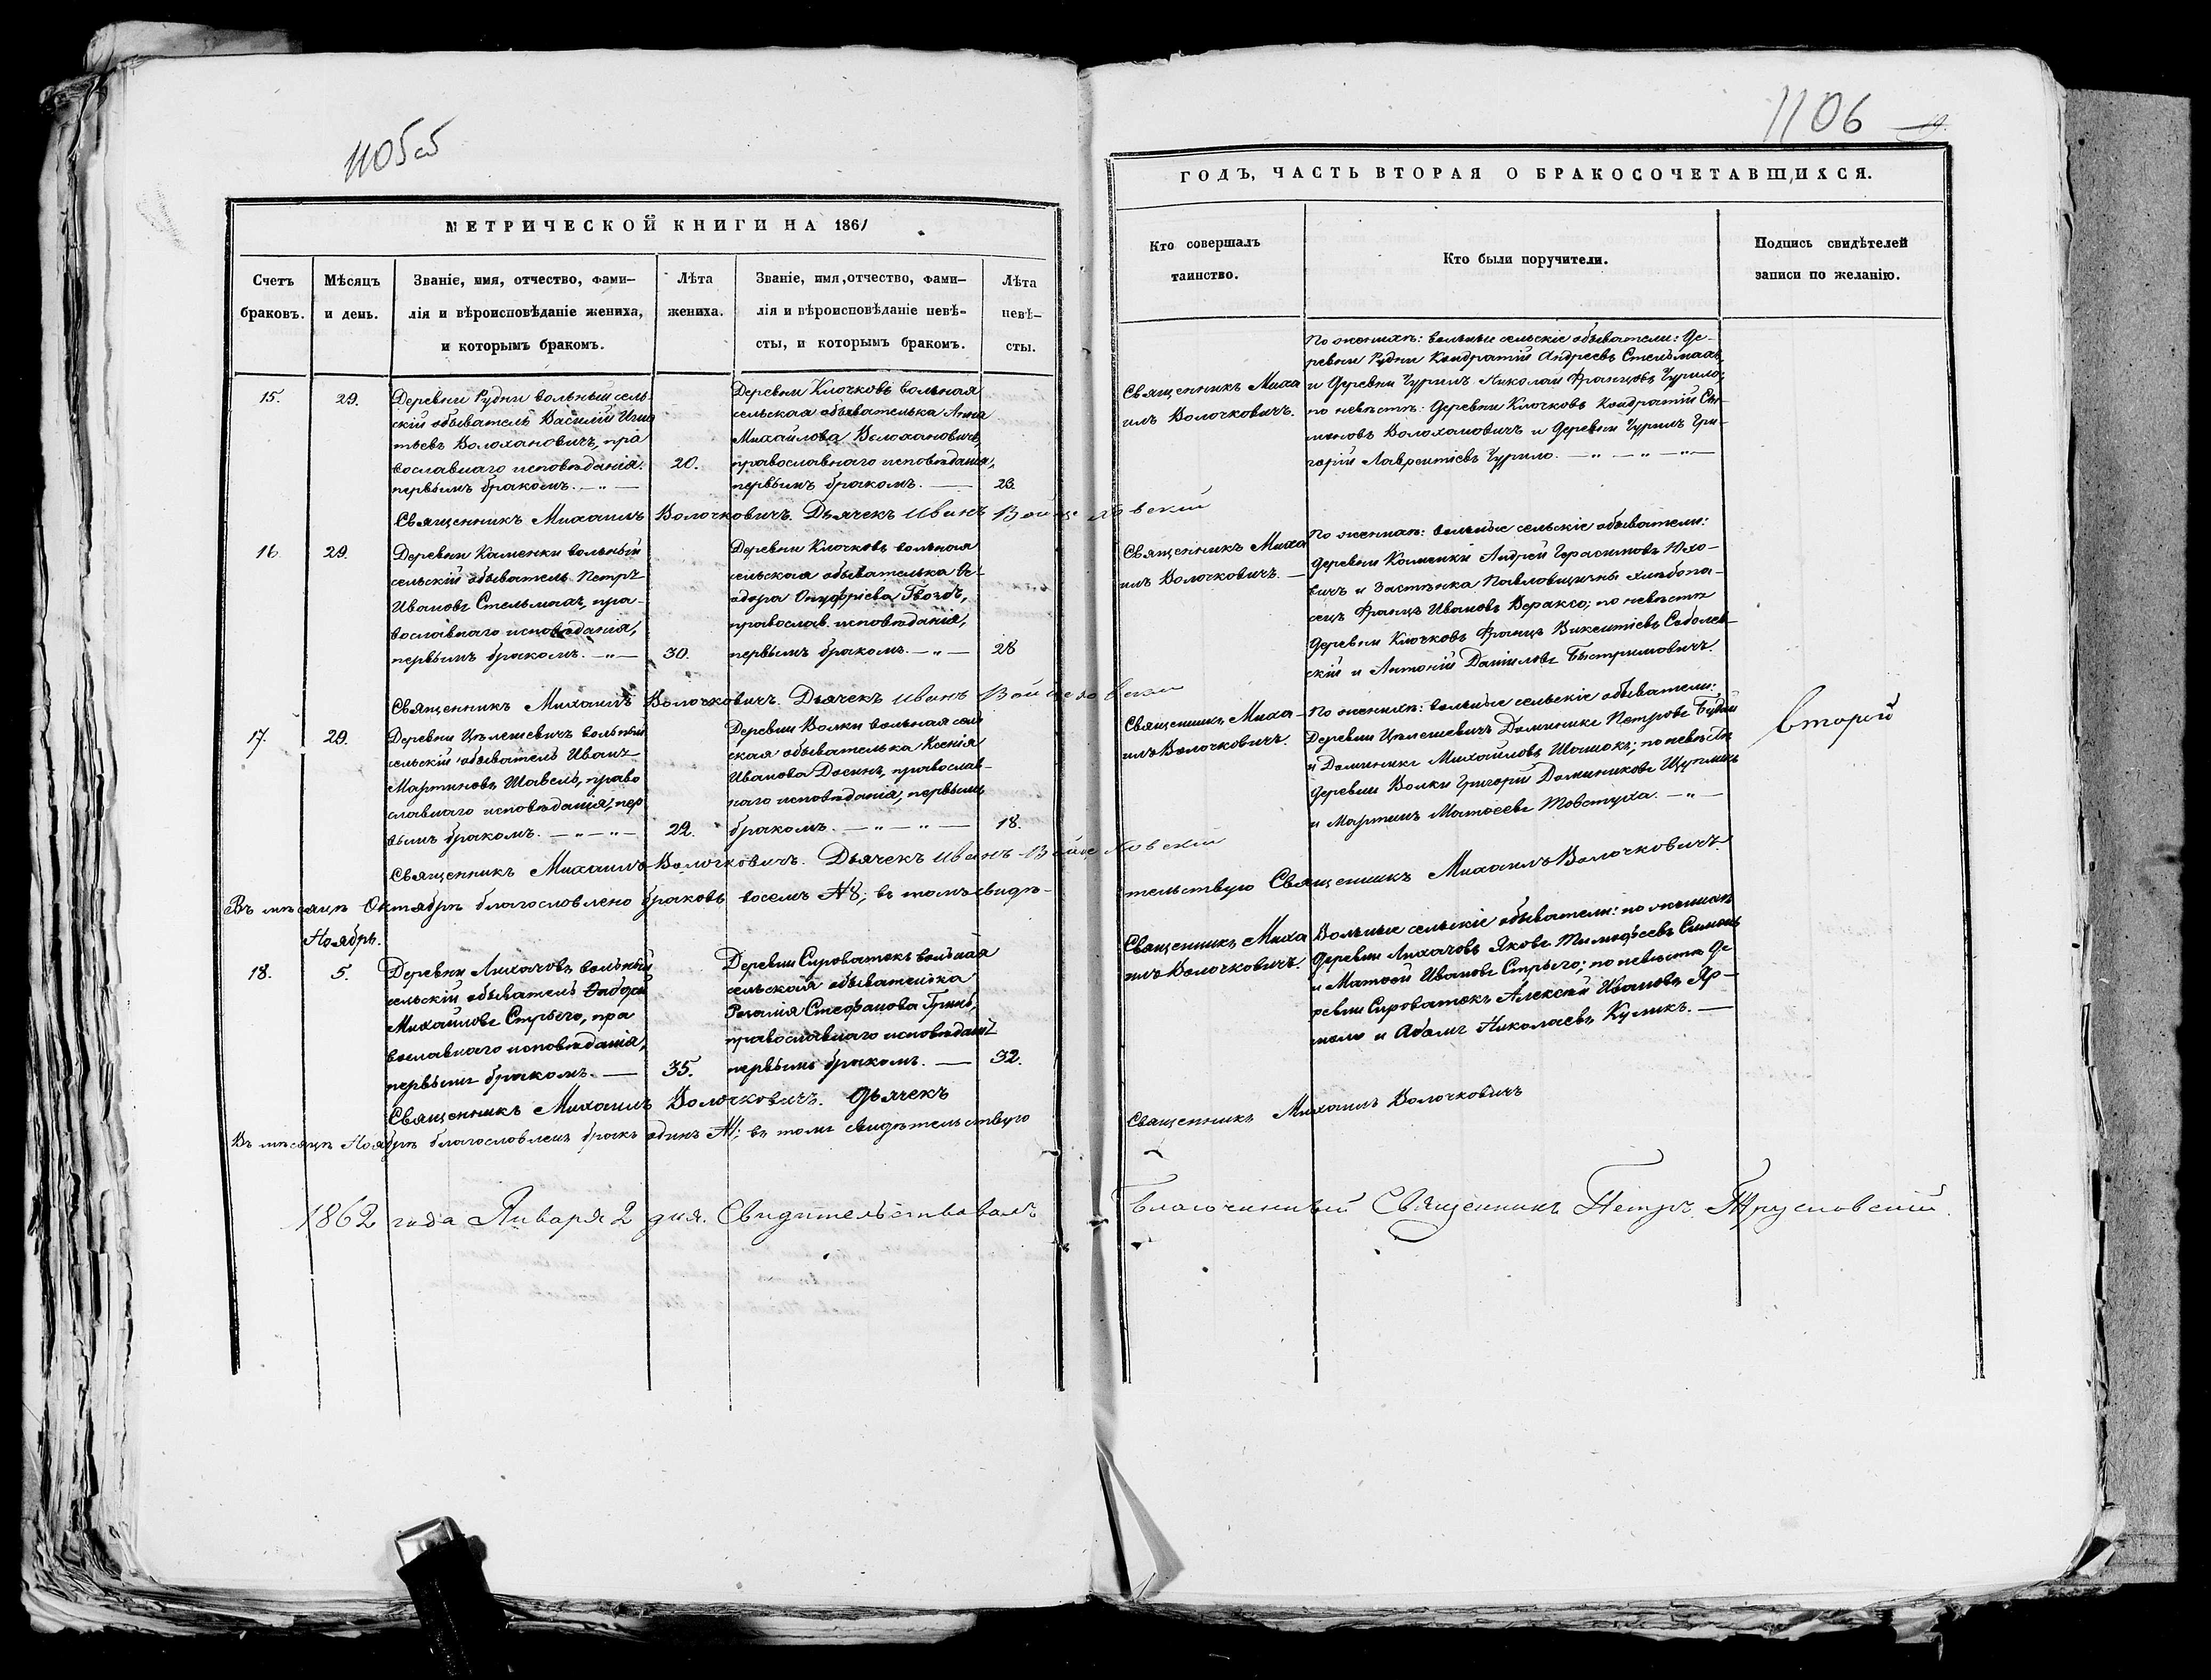 1105об
МЕТРИЧЕСКОЙ КНИГИ НА 1861
Счетъ браковъ.
Мѣсяцъ и день.
Званіе, имя, отчество, фами-
лія и вѣроисповѣданіе жениха,
и которымъ бракомъ.
Лѣта жениха.
Званіе, имя, отчество, фами-
лія и вѣроисповѣданіе невѣ-
сты, и которымъ бракомъ.
Лѣта невѣ-
сты.
15.
29.
Деревни Рудни вольный сель-
скій обыватель Василій Игна
тьевъ Волохановичъ, пра
вославнаго исповѣданія.
первымъ бракомъ. — „ —
20.
Деревни Клочковъ вольная
сельская обывателька Анна
Михайлова Волохановичъ,
православнаго исповѣданія,
первымъ бракомъ. —
23.
Священникъ Михаилъ Волочковичъ. Дьячекъ Иванъ Войцеховскій
16.
29.
Деревни Каменки вольный
сельскій обыватель Петръ
Ивановъ Стельмахъ, пра-
вославнаго исповѣданія,
первымъ бракомъ. — „ —
30.
Деревни Клочковъ вольная
сельская обывателька Ѳе-
одора Онуфріева Гвоздь,
православ. исповѣданія,
первымъ бракомъ. — „ —
28
Священникъ Михаилъ Волочковичъ. Дьячекъ Иванъ Войцеховскій
17.
29.
Деревни Цѣлешевичъ вольный
сельскій обыватель Иванъ
Мартиновъ Шавель, право
славнаго исповѣданія, пер
вымъ бракомъ. — „ — „ —
22.
Деревни Волки вольная сель
ская обывателька Ксенія
Иванова Досинъ, православ-
наго исповѣданія, первымъ
бракомъ. — „ — „ —
18.
Священникъ Михаилъ Волочковичъ. Дьячекъ Иванъ Войцеховскій
Въ мѣсяцѣ Октябрѣ благословлено браковъ восемь №8; въ томъ свидѣ-
Ноябрь.
18.
5.
Деревни Лихачовъ вольный
сельскій обыватель
Михайловъ Стрыго, пра
вославнаго исповѣданія,
первымъ бракомъ. —
35.
Деревни Сыроватокъ вольная
сельская обывателька
Розалія Стефанова Гринь,
православнаго исповѣданія
первымъ бракомъ. —
32.
Священникъ Михаилъ Волочковичъ. Дьячекъ
Въ мѣсяцѣ Ноябрѣ благословленъ бракъ одинъ №1; въ томъ свидѣтельствую
1862 года Января 2 дня. Свидѣтельствовалъ
1106
19.
ГОДЪ, ЧАСТЬ ВТОРАЯ О БРАКОСОЧЕТАВШИХСЯ.
Кто совершалъ
таинство.
Кто были поручители.
Подпись свидѣтелей
записи по желанію.
Священникъ Миха
илъ Волочковичъ.
По женихѣ: вольные сельскіе обыватели: Де-
ревни Рудни Кондратій Андреевъ Стельмахъ,
и Деревни Чурилъ Николай Францовъ Чурило;
по невѣстѣ: Деревни Клочковъ Кондратій Си-
моновъ Волохановичъ и Деревни Чурилъ Гри-
горій Лаврентіевъ Чурило. — „ — „ — „ —
Священникъ Миха
илъ Волочковичъ. —
По женихѣ: вольные сельскіе обыватели:
Деревни Каменки Андрей Герасимовъ Юхо-
вичъ и Застѣнка Павловщизны хлѣбопа-
сецъ Францъ Ивановъ Вераксо; по невѣстѣ
Деревни Клочковъ Францъ Викентіевъ Соболев-
скій и Антоній Даніиловъ Быстримовичъ.
Священникъ Миха-
илъ Волочковичъ.
По женихѣ: вольные сельскіе обыватели:
Деревни Цѣлешевичъ Доминикъ Петровъ Будай
и Доминикъ Михайловъ Шошокъ; по невѣстѣ
Деревни Волки Григорій Доминиковъ
и Мартинъ Матѳеевъ Товстуха. — „ —
второй
тельствую Священникъ Михаилъ Волочковичъ.
Священникъ Миха
илъ Волочковичъ.
Вольные сельскіе обыватели: по женихѣ
Деревни Лихачовъ Яковъ Тимофеевъ Симонъ
и Матѳей Ивановъ Стрыго; по невѣстѣ Де
ревни Сыроватокъ Алексѣй Ивановъ Яр-
моло и Адамъ Николаевъ Куликъ. —
Священникъ Михаилъ Волочковичъ
Благочинный Священникъ Петръ Трусковскій.